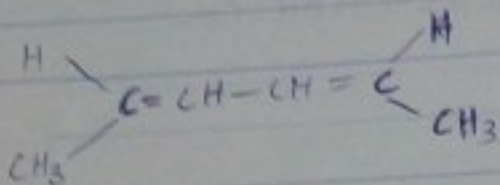 H H
C = CH - CH = C
CH3 CH3